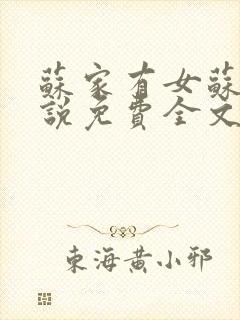 蘇家有女蘇
說免費全文
東海黃小邪